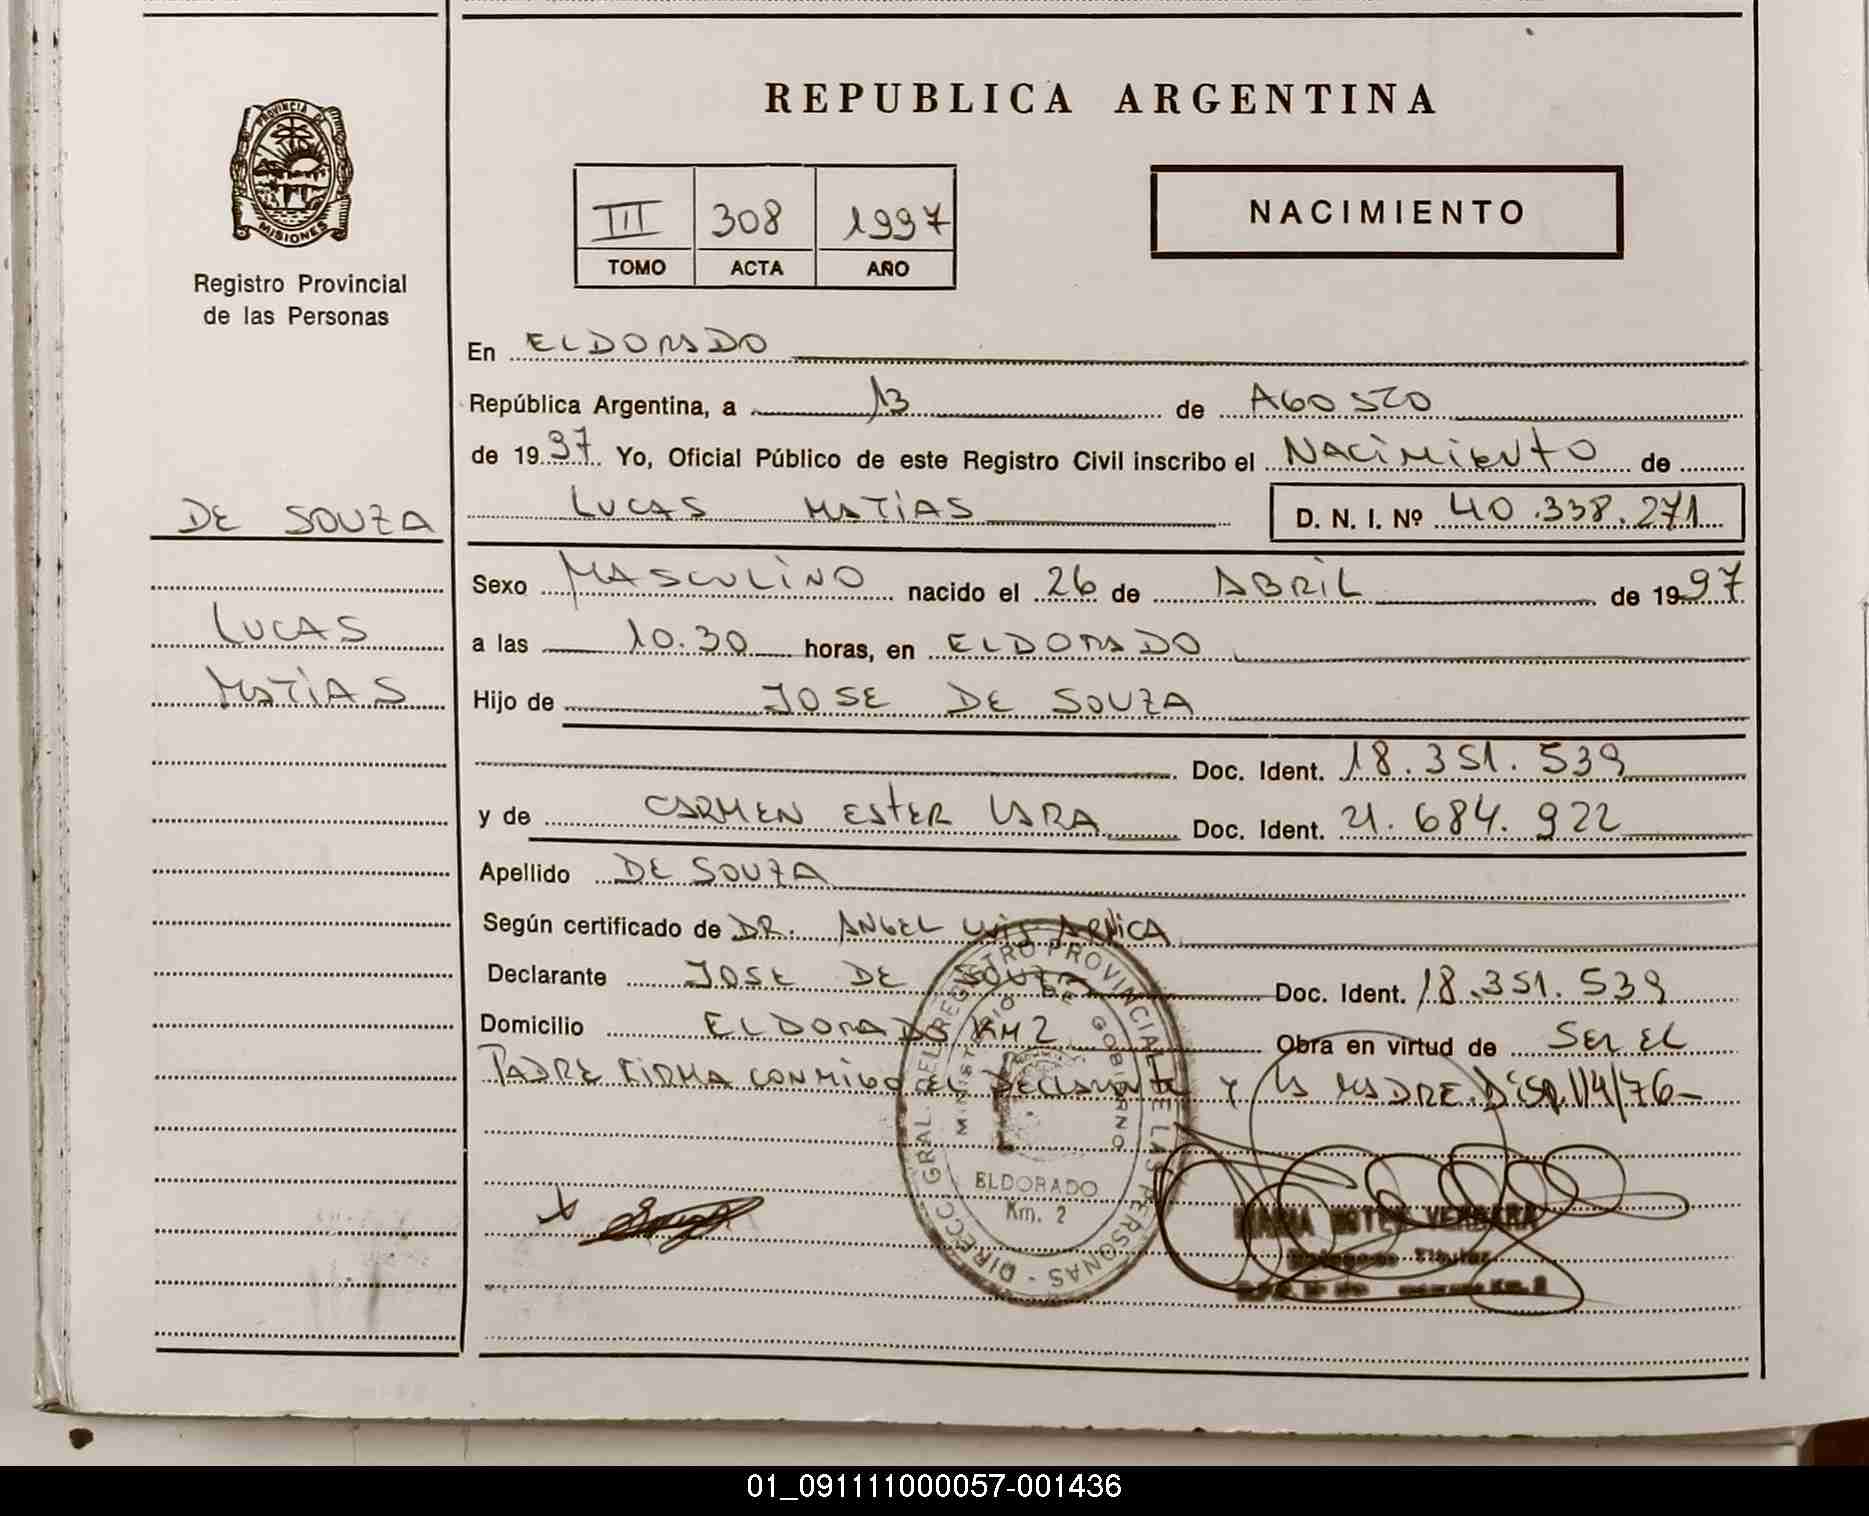 REPUBLICA ARGENTINA
PROVINCIA DE
MISIONES
Registro Provincial
de las Personas
III 308 1997
TOMO ACTA AÑO
NACIMIENTO
En ELDORADO
República Argentina, a 13 de AGOSTO
de 1997 Yo, Oficial Público de este Registro Civil inscribo el NACIMIENTO de
DE SOUZA
LUCAS MATIAS D. N. I. Nº 40.338.271
Sexo MASCULINO nacido el 26 de ABRIL de 1997
LUCAS
a las 10.30 horas, en ELDORADO
MATIAS
Hijo de JOSE DE SOUZA
Doc. Ident. 18.351.539
y de CARMEN ESTER LARA Doc. Ident. 21.684.922
Apellido DE SOUZA
Según certificado de DR. ANGEL LUIS ARNICA
Declarante JOSE DE SOUZA Doc. Ident. 18.351.539
Domicilio ELDORADO KM 2 Obra en virtud de SER EL
PADRE FIRMA CONMIGO EL DECLARANTE Y LA MADRE. DISP. 114/76-
DIRECC. GRAL. DEL REGISTRO PROVINCIAL DE LAS PERSONAS -
MINISTERIO DE GOBIERNO
ELDORADO
Km. 2
Km. 2
01_091111000057-001436